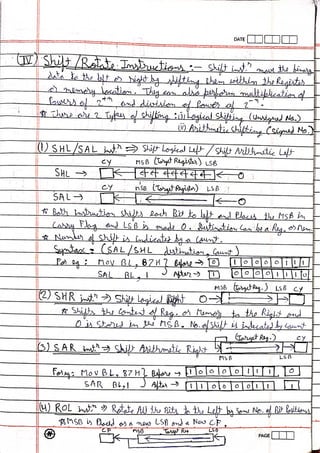 DATE
(IV) Shift/Rotate Instructions :- Shift instn move the binary
data to the left or right by shifting them within the Register
or memory location. They can also perform multiplication of
Powers of 2+n and division of Power of 2-n.
* There are 2 Types of Shifting : (i) Logical Shifting (Unsigned No.)
(ii) Arithmetic Shifting (Signed No.)
(1) SHL/SAL instn ⇒ Shift Logical Left / Shift Arithmetic Left
CY MSB (Target Register) LSB
SHL → 0
CY MSB (Target Register) LSB
SAL → 0
* Both Instruction Shifts each Bit to left and Places the MSB in
Carry Flag and LSB is made 0. Destination can be a Reg. or Mem
* Number of Shift is indicated by a Count.
Syntax = (SAL/SHL destination, Count)
For eg : MOV BL, B7H Before → 0 1 0 0 0 0 1 1 1
SAL BL, 1 After → 1
MSB (Target Reg.) LSB CY
(2) SHR instn → Shift Logical Right 0→
* Shifts the Content of Reg. or Memory to the Right and
0 is stored in the MSB. No. of Shift is indicated by Count
(3) SAR instn → Shift Arithmetic Right (Target Reg.) CY
MSB LSB
For eg : MOV BL, 87H Before → 1 0 0 0 0 1 1 1 0
SAR BL, 1 After → 1 1 0 0 0 0 1 1 1
(4) ROL instn ⇒ Rotate All the Bits to the Left by Some No. of Bit Positions
* MSB is Placed as a new LSB and a New CF.
CF MSB Target Reg LSB
PAGE